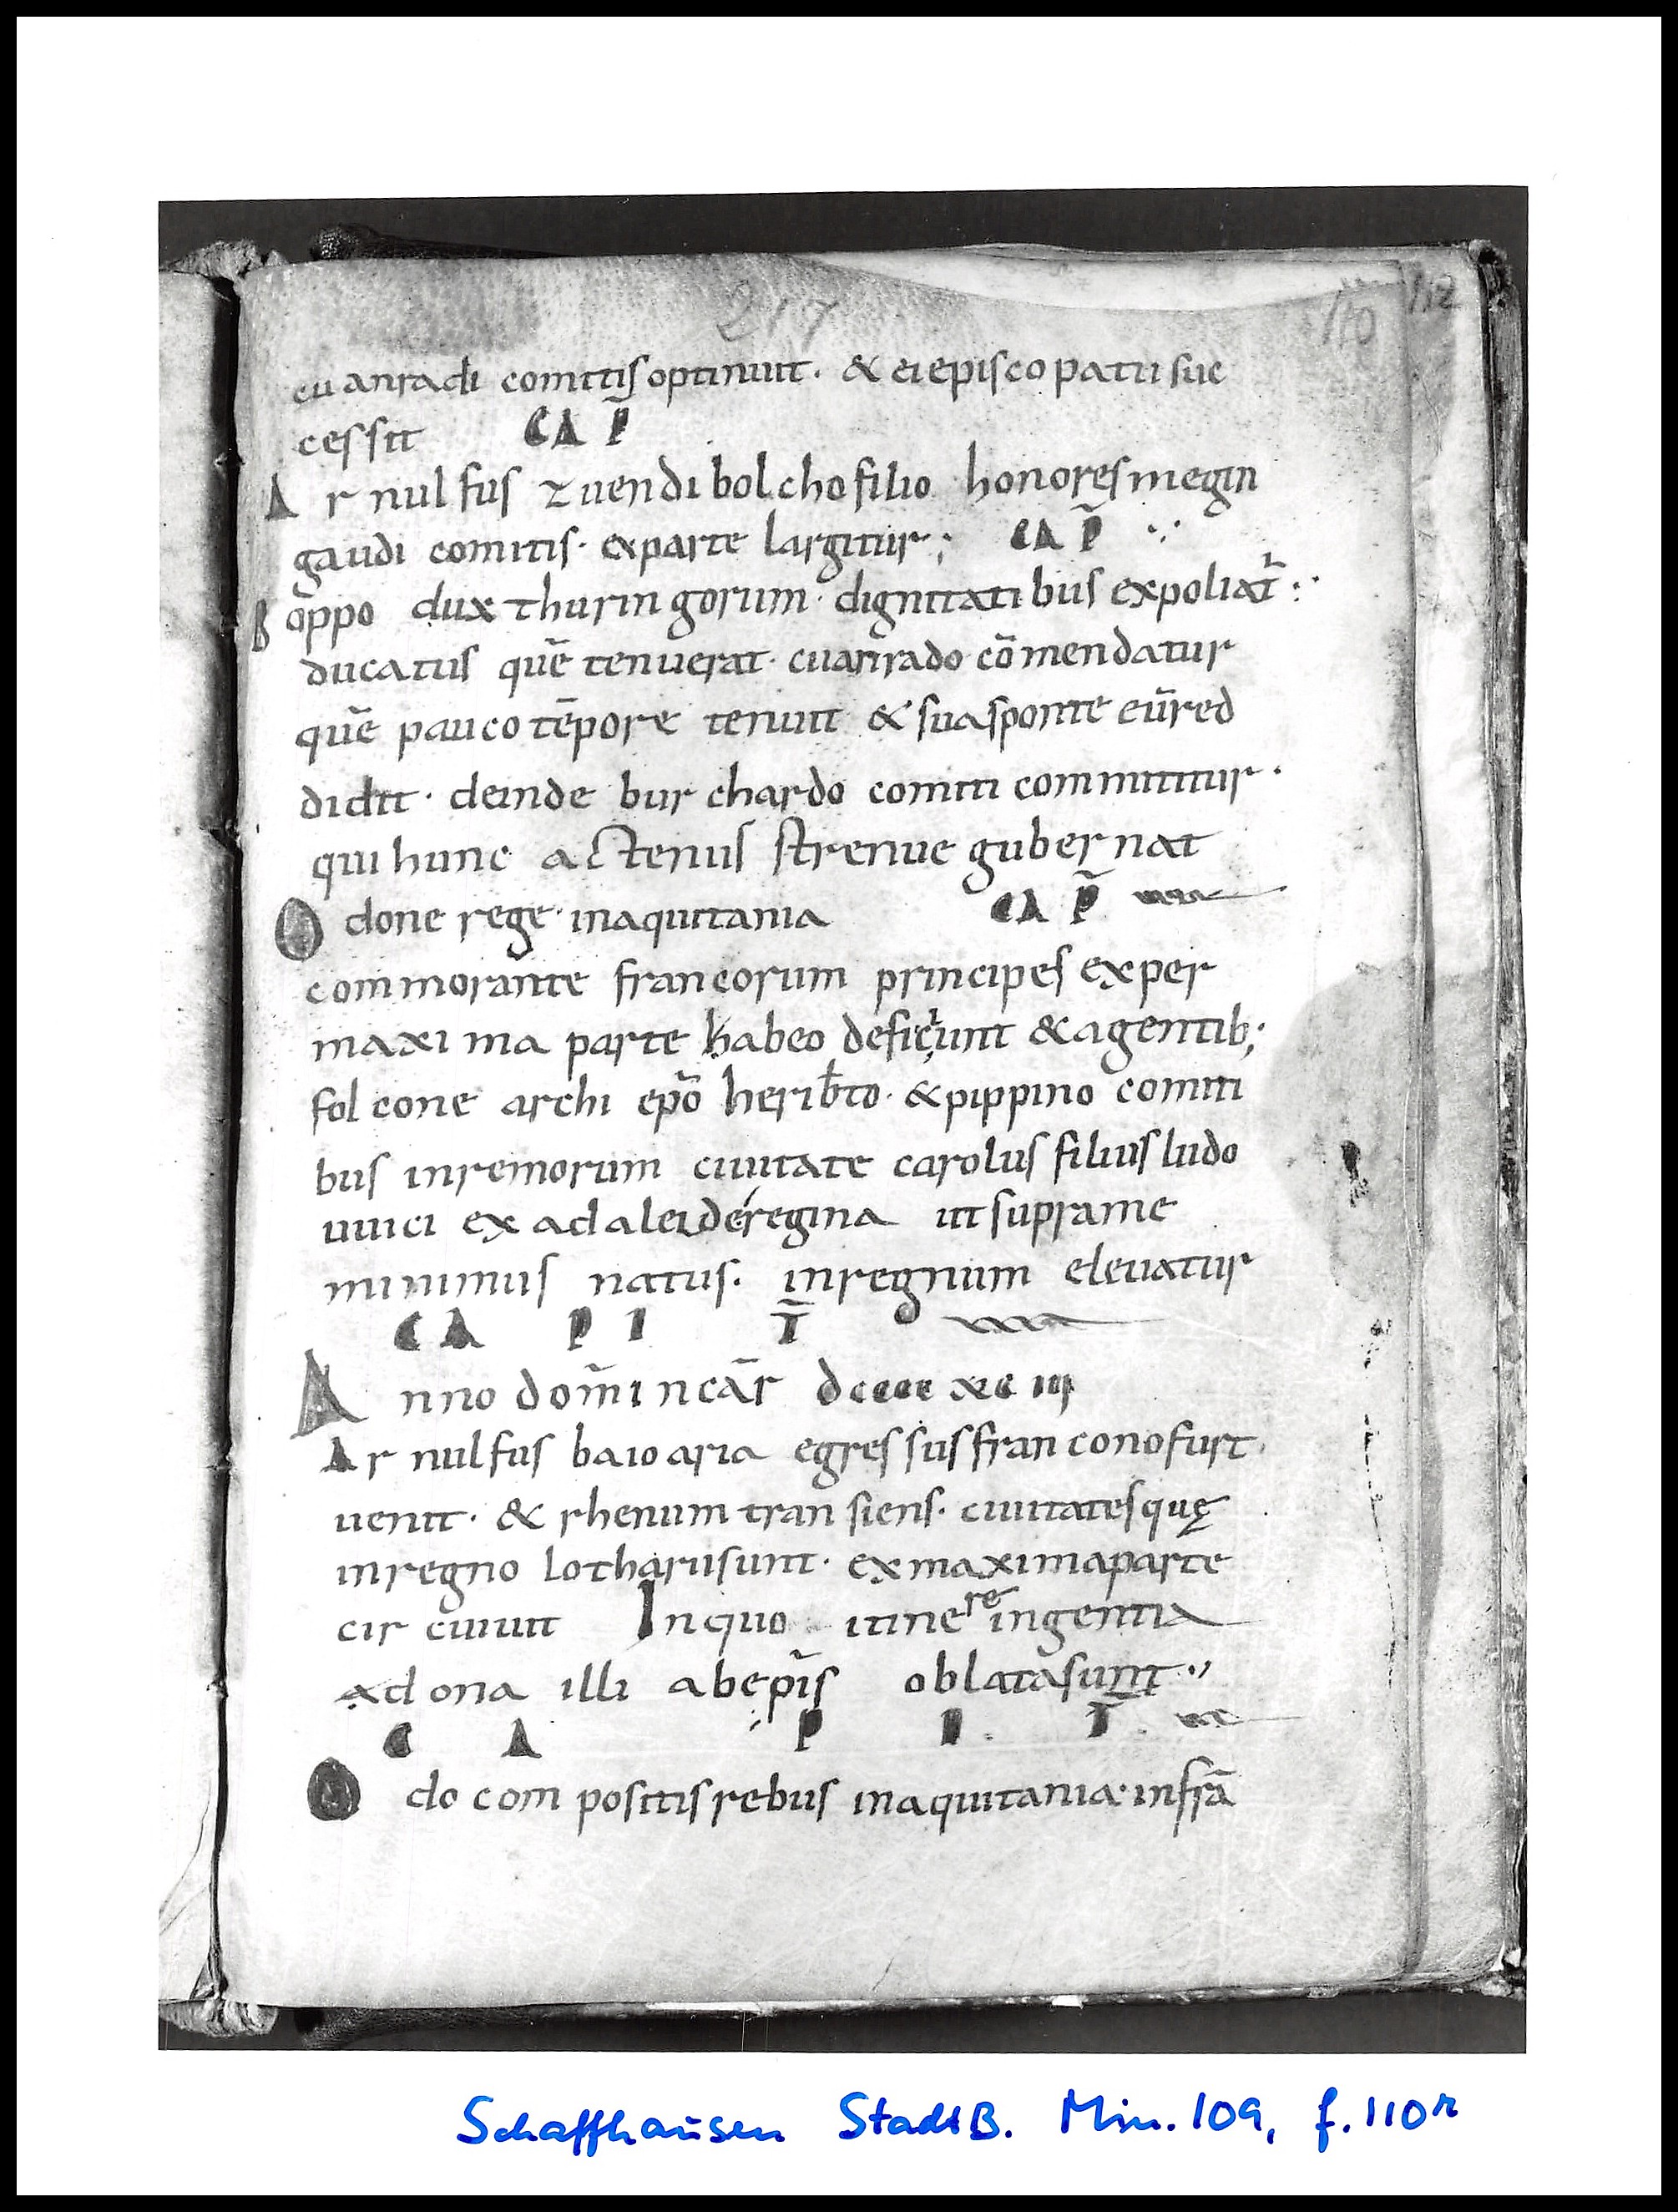 217 110 112
cuanradi comitis optinuit · & ei episcopatu suc
cessit CAP̃
Arnulfus zuendibolcho filio honores megin
gaudi comitis · ex parte largitur; CAP̃ ∵
Boppo dux thuringorum · dignitatibus expoliat̃ :·
ducatus quē tenuerat · cuanrado cōmendatur
quē pauco tēpore tenuit & sua sponte eū red
didit · deinde burchardo comiti committitur ·
qui hunc actenus strenue gubernat
Odone rege · in aquitania CAP̃
commorante francorum principes ex per
maxima parte habeo deficiunt & agentib;
folcone archi ep̃o herib̄to · & pippino comiti
bus in remorum ciuitate carolus filius ludo
uuici ex adaleide regina ut supra me
minimus natus · in regnum eleuatur
CAPI T̄
Anno dom̃i incār dcccc xc iii
Arnulfus baioaria egressus franconofurt
uenit · & rhenum transiens · ciuitates quę
in regno lotharii sunt · ex maxima parte
circūiuit In quo itinere ingentia
adona illi ab ep̃is oblata sunt ·
C A P I T̄
Odo compositis rebus in aquitania · in frā
Schaffhausen StadtB. Min. 109, f. 110r